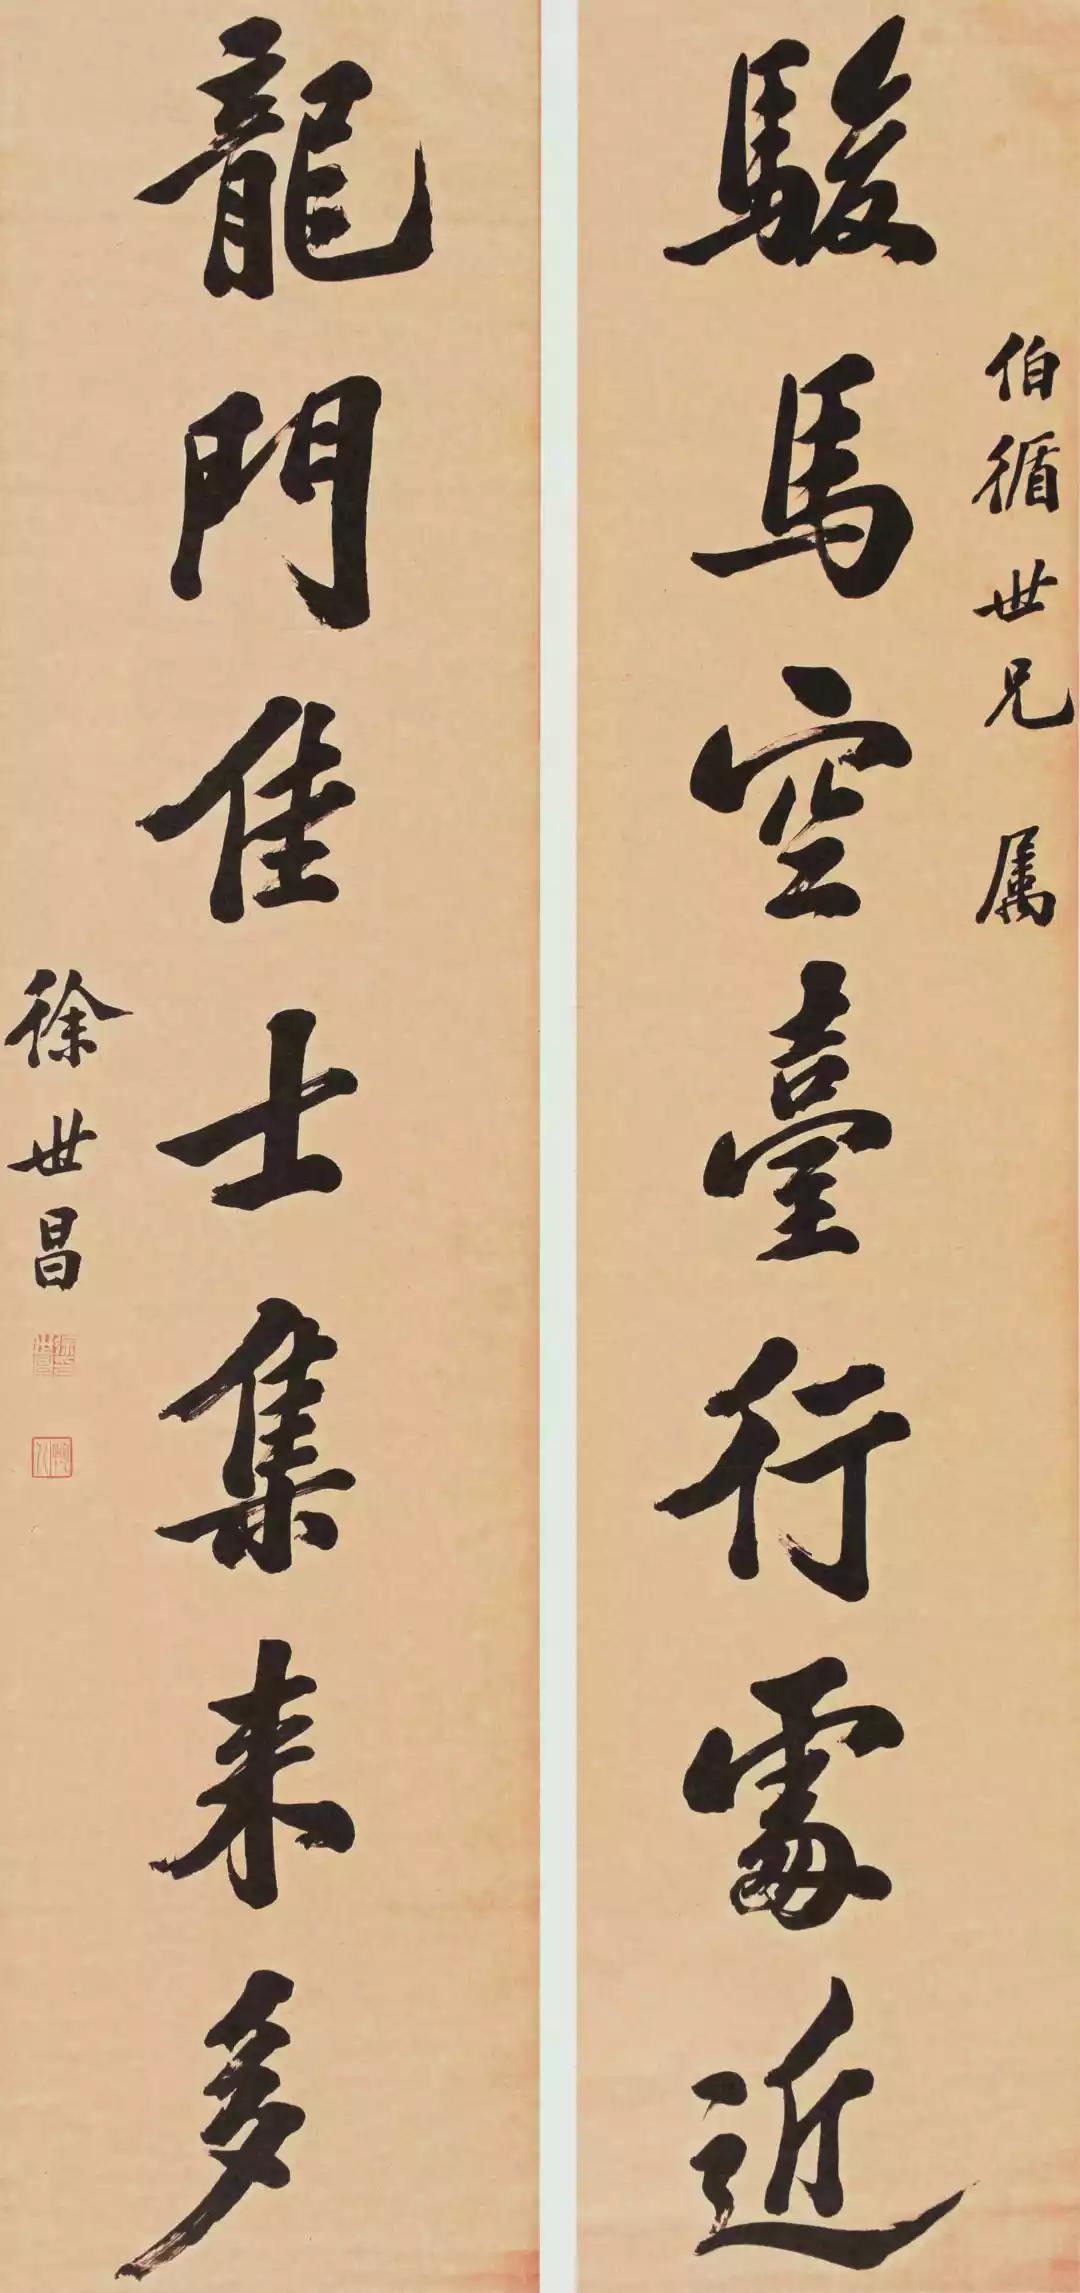 駿馬空臺行處近
伯循世兄 属
龍門佳士集来多
徐世昌